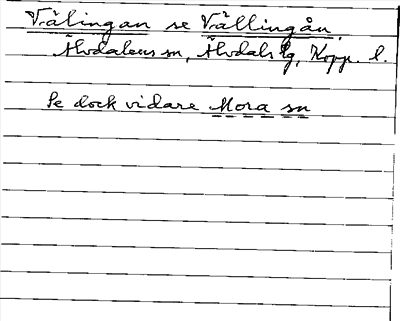 Vålingan se Vållingån.
Älvdalens sn, Älvdals tg, Kopp. l.
Se dock vidare Mora sn